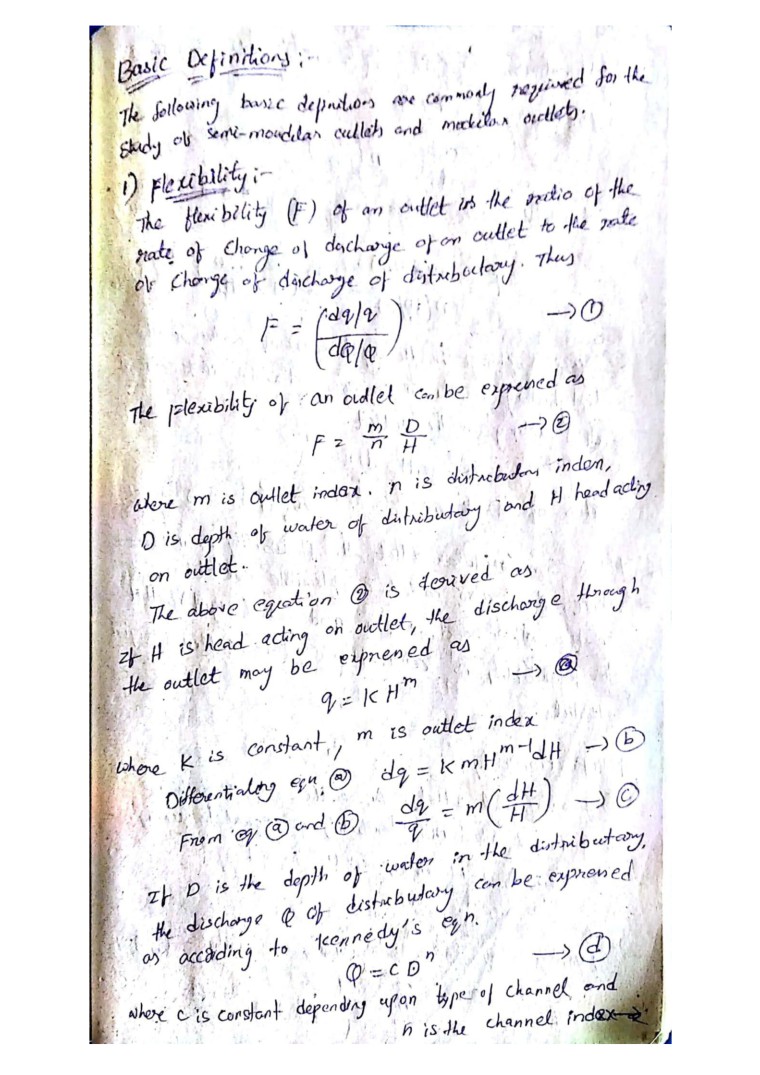 Basic Definitions :-
The following basic definitions are commonly required for the
study of semi-moudular outlets and modular outlets.
1) Flexibility :-
The flexibility (F) of an outlet is the ratio of the
rate of change of discharge of an outlet to the rate
of change of discharge of distributary. Thus
F = (dq/q / dQ/Q) → ①
The flexibility of an outlet can be expressed as
F = m/n D/H → ②
where m is outlet index. n is distributary index,
D is depth of water of distributary and H head acting
on outlet.
The above equation ② is derived as
If H is head acting on outlet, the discharge through
the outlet may be expressed as
q = K H^m → ⓐ
where K is constant, m is outlet index
Differentiating eqn ⓐ dq = K m H^m-1 dH → ⓑ
From eq ⓐ and ⓑ dq/q = m(dH/H) → ⓒ
If D is the depth of water in the distributary,
the discharge Q of distributary can be expressed
as according to Kennedy's eqn.
Q = C D^n → ⓓ
where c is constant depending upon type of channel and
n is the channel index →